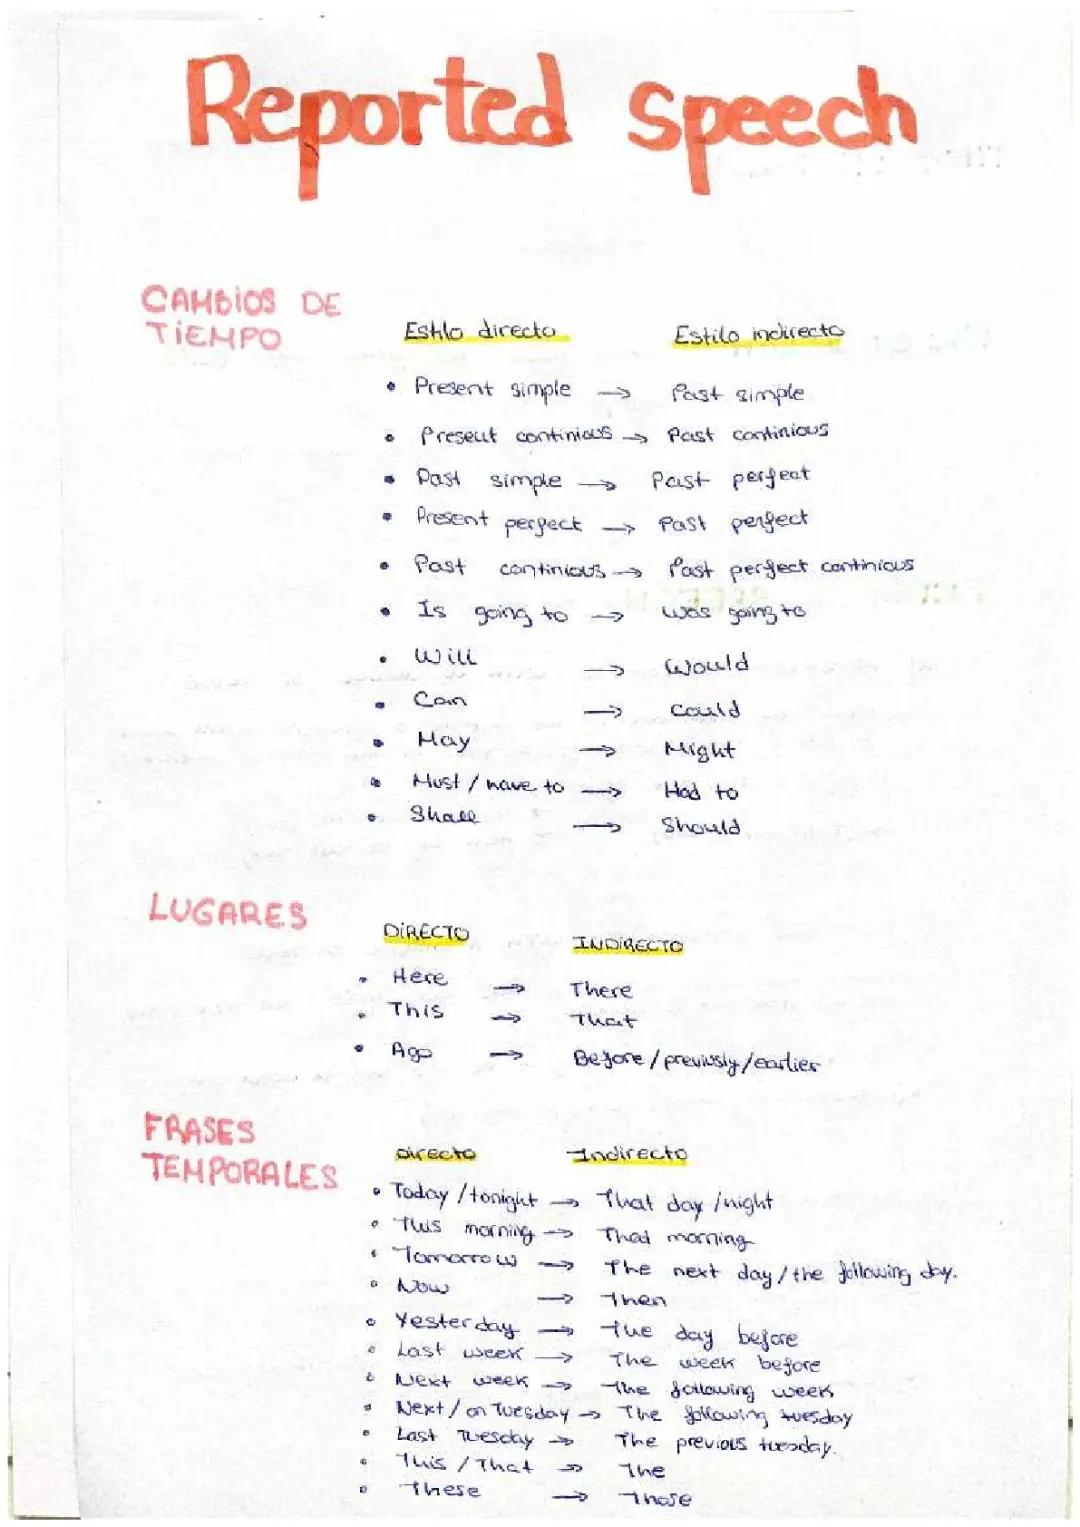 Reported speech
CAMBiOS DE
TiEMPO
Estilo directo Estilo indirecto
• Present simple → Past simple
• Present continious → Past continious
• Past simple → Past perfect
• Present perfect → Past perfect
• Past continious → Past perfect continious
• Is going to → Was going to
• Will → Would
• Can → Could
• May → Might
• Must / have to → Had to
• Shall → Should
LUGARES
DiRECTO INDIRECTO
• Here → There
• This → That
• Ago → Before / previusly / earlier
FRASES
TEMPORALES
Directo Indirecto
• Today / tonight → That day / night
• This morning → That morning
• Tomorrow → The next day / the following day.
• Now → Then
• Yesterday → The day before
• Last week → The week before
• Next week → The following week
• Next / on Tuesday → The following tuesday
• Last Tuesday → The previous tuesday.
• This / That → The
• These → Those